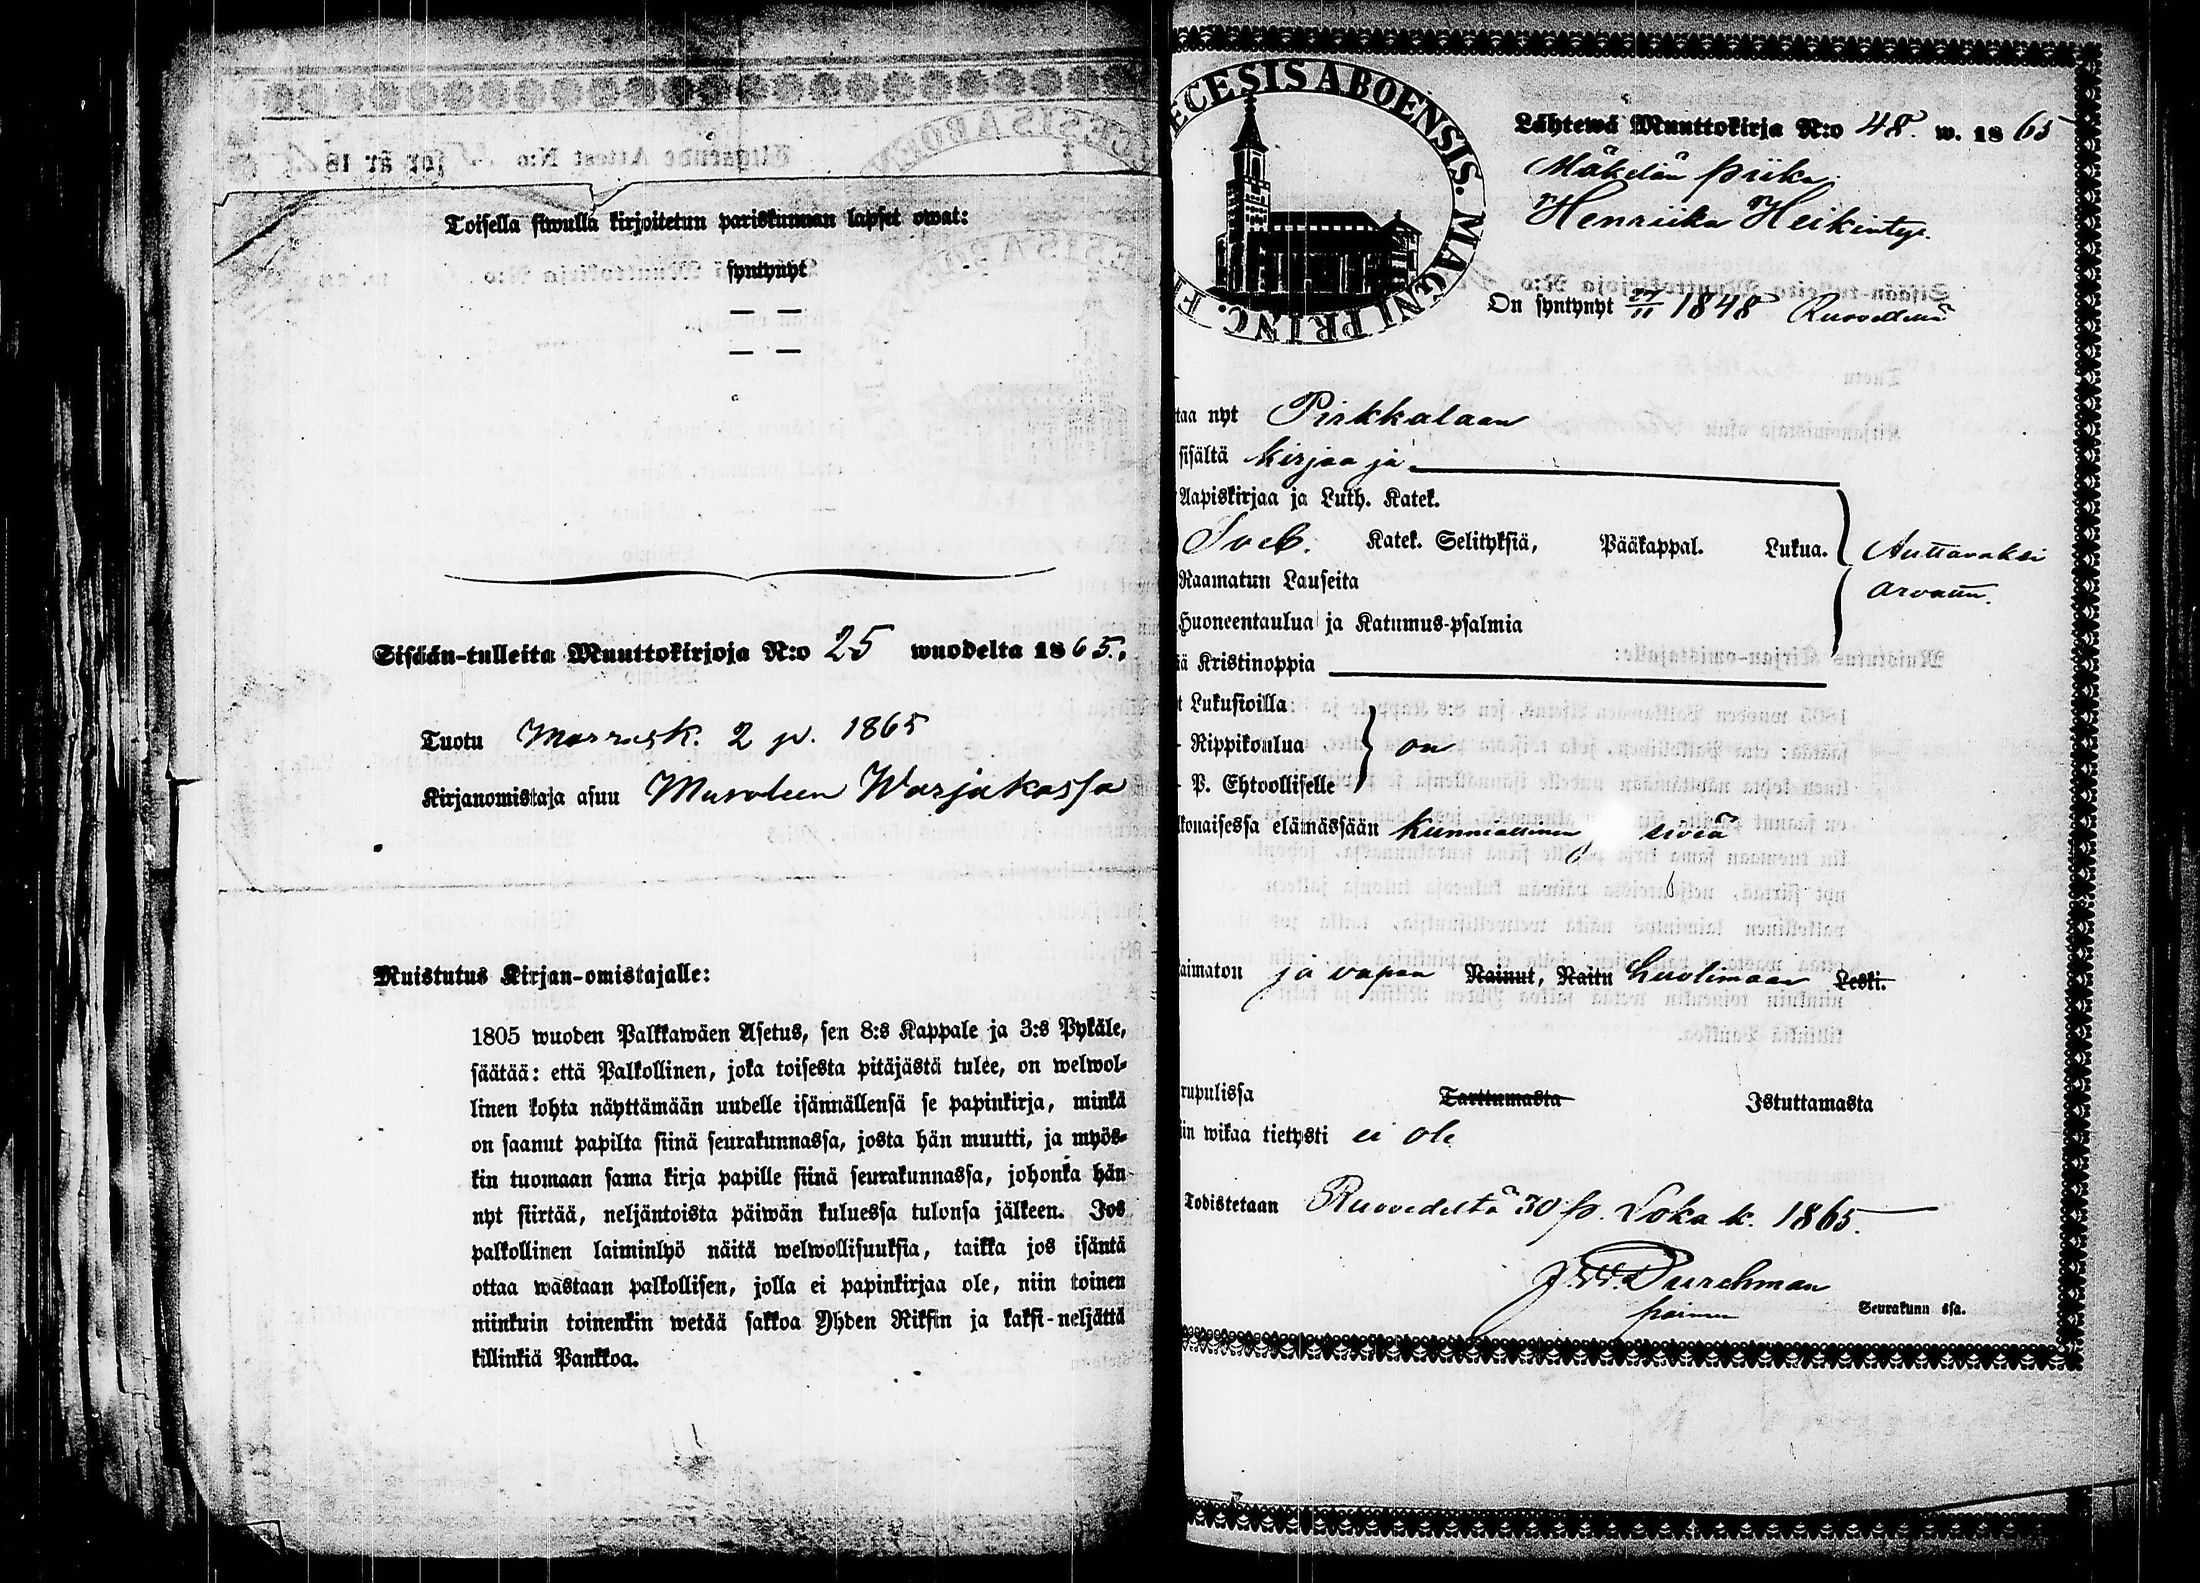 Toisella siwulla kirjoitetun pariskunnan lapset owat:
syntynyt
— —
— —
Sisään-tulleita Muuttokirjoja N:o 25 wuodelta 1865.
Tuotu Marrask. 2 p. 1865
Kirjanomistaja asuu Muroleen Warjakassa
Muistutus Kirjan-omistajalle:
1805 wuoden Palkkawäen Asetus, sen 8:s Kappale ja 3:s Pykäle,
säätää: että Palkollinen, joka toisesta pitäjästä tulee, on welwol-
linen kohta näyttämään uudelle isännällensä se papinkirja, minkä
on saanut papilta siinä seurakunnassa, josta hän muutti, ja myös-
kin tuomaan sama kirja papille siinä seurakunnassa, johonka hän
nyt siirtää, neljäntoista päiwän kuluessa tulonsa jälkeen. Jos
palkollinen laiminlyö näitä welwollisuuksia, taikka jos isäntä
ottaa wastaan palkollisen, jolla ei papinkirjaa ole, niin toinen
niinkuin toinenkin wetää sakkoa Yhden Riksin ja kaksi-neljättä
killinkiä Pankkoa.
ECESIS ABOENSIS. MAGNI PRINC. F
Lähtewä Muuttokirja N:o 48. w. 1865
Mäkelän piika
Henriika Heikintyt.
On syntynyt 27/11 1848 Ruovedellä
taa nyt Pirkkalaan
sisältä kirjaa ja
Aapiskirjaa ja Luth. Katek.
Sveb. Katek. Selityksiä, Pääkappal. Lukua. Auttavaksi
Raamatun Lauseita arvattu.
Huoneentaulua ja Katumus-psalmia
iä Kristinoppia
t Lukusioilla
- Rippikoulua on
- P. Ehtoolliselle
lkonaisessa elämässään kunniallinen siviä
aimaton ja vapaa Nainut, Naitu Luvlimaan Leski.
rupulissa Tarttumasta Istuttamasta
in wikaa tietysti ei ole
Todistetaan Ruovedeltä 30 p. Loka k. 1865.
J. W. Durchman
Seurakunn ssa.